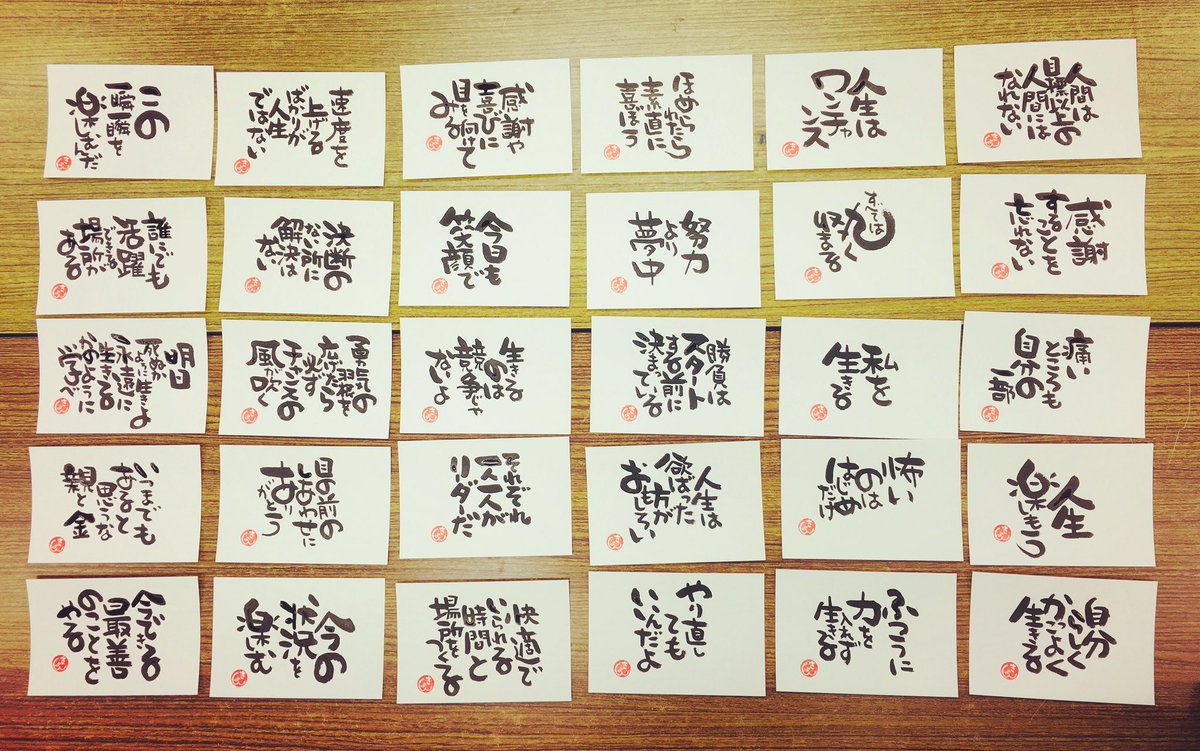 この
一瞬一瞬を
楽しむんだ
速度を
上げる
ばかりが
人生
ではない
感謝や
喜びに
目を向けて
みる
ほめら
れたら
素直に
喜ぼう
人生は
ワンチャ
ンス
人間は
目標以上の
人間には
なれない
誰にでも
活躍
できる
場所が
ある
決断の
ない所に
解決は
ない
今日も
笑顔で
努力
より
夢中
すべては
丸く
収まる
感謝
することを
忘れない
明日
死ぬか
ように生きよ
永遠に
生きる
かのように
学べ
勇気の
翼を
広げたら
必ず
チャンスの
風が吹く
生きる
のは
競争じゃ
ないよ
勝負は
スタート
する前に
決まっている
私を
生きる
痛い
ところも
自分の
一部
いつまでも
あると
思うな
親と金
目の前の
しあわせに
あり
がとう
それぞれ
一人一人が
リーダーだ
人生は
欲ばった
方が
おもしろい
怖い
のは
はじめ
だけ
人生
楽しもう
今できる
最善
のことを
やる
今の
状況を
楽しむ
快適で
いられる
時間と
場所を
つくる
やり直し
ても
いいんだよ
ふつうに
力を
入れず
生きる
自分
らしく
かっこよく
生きる